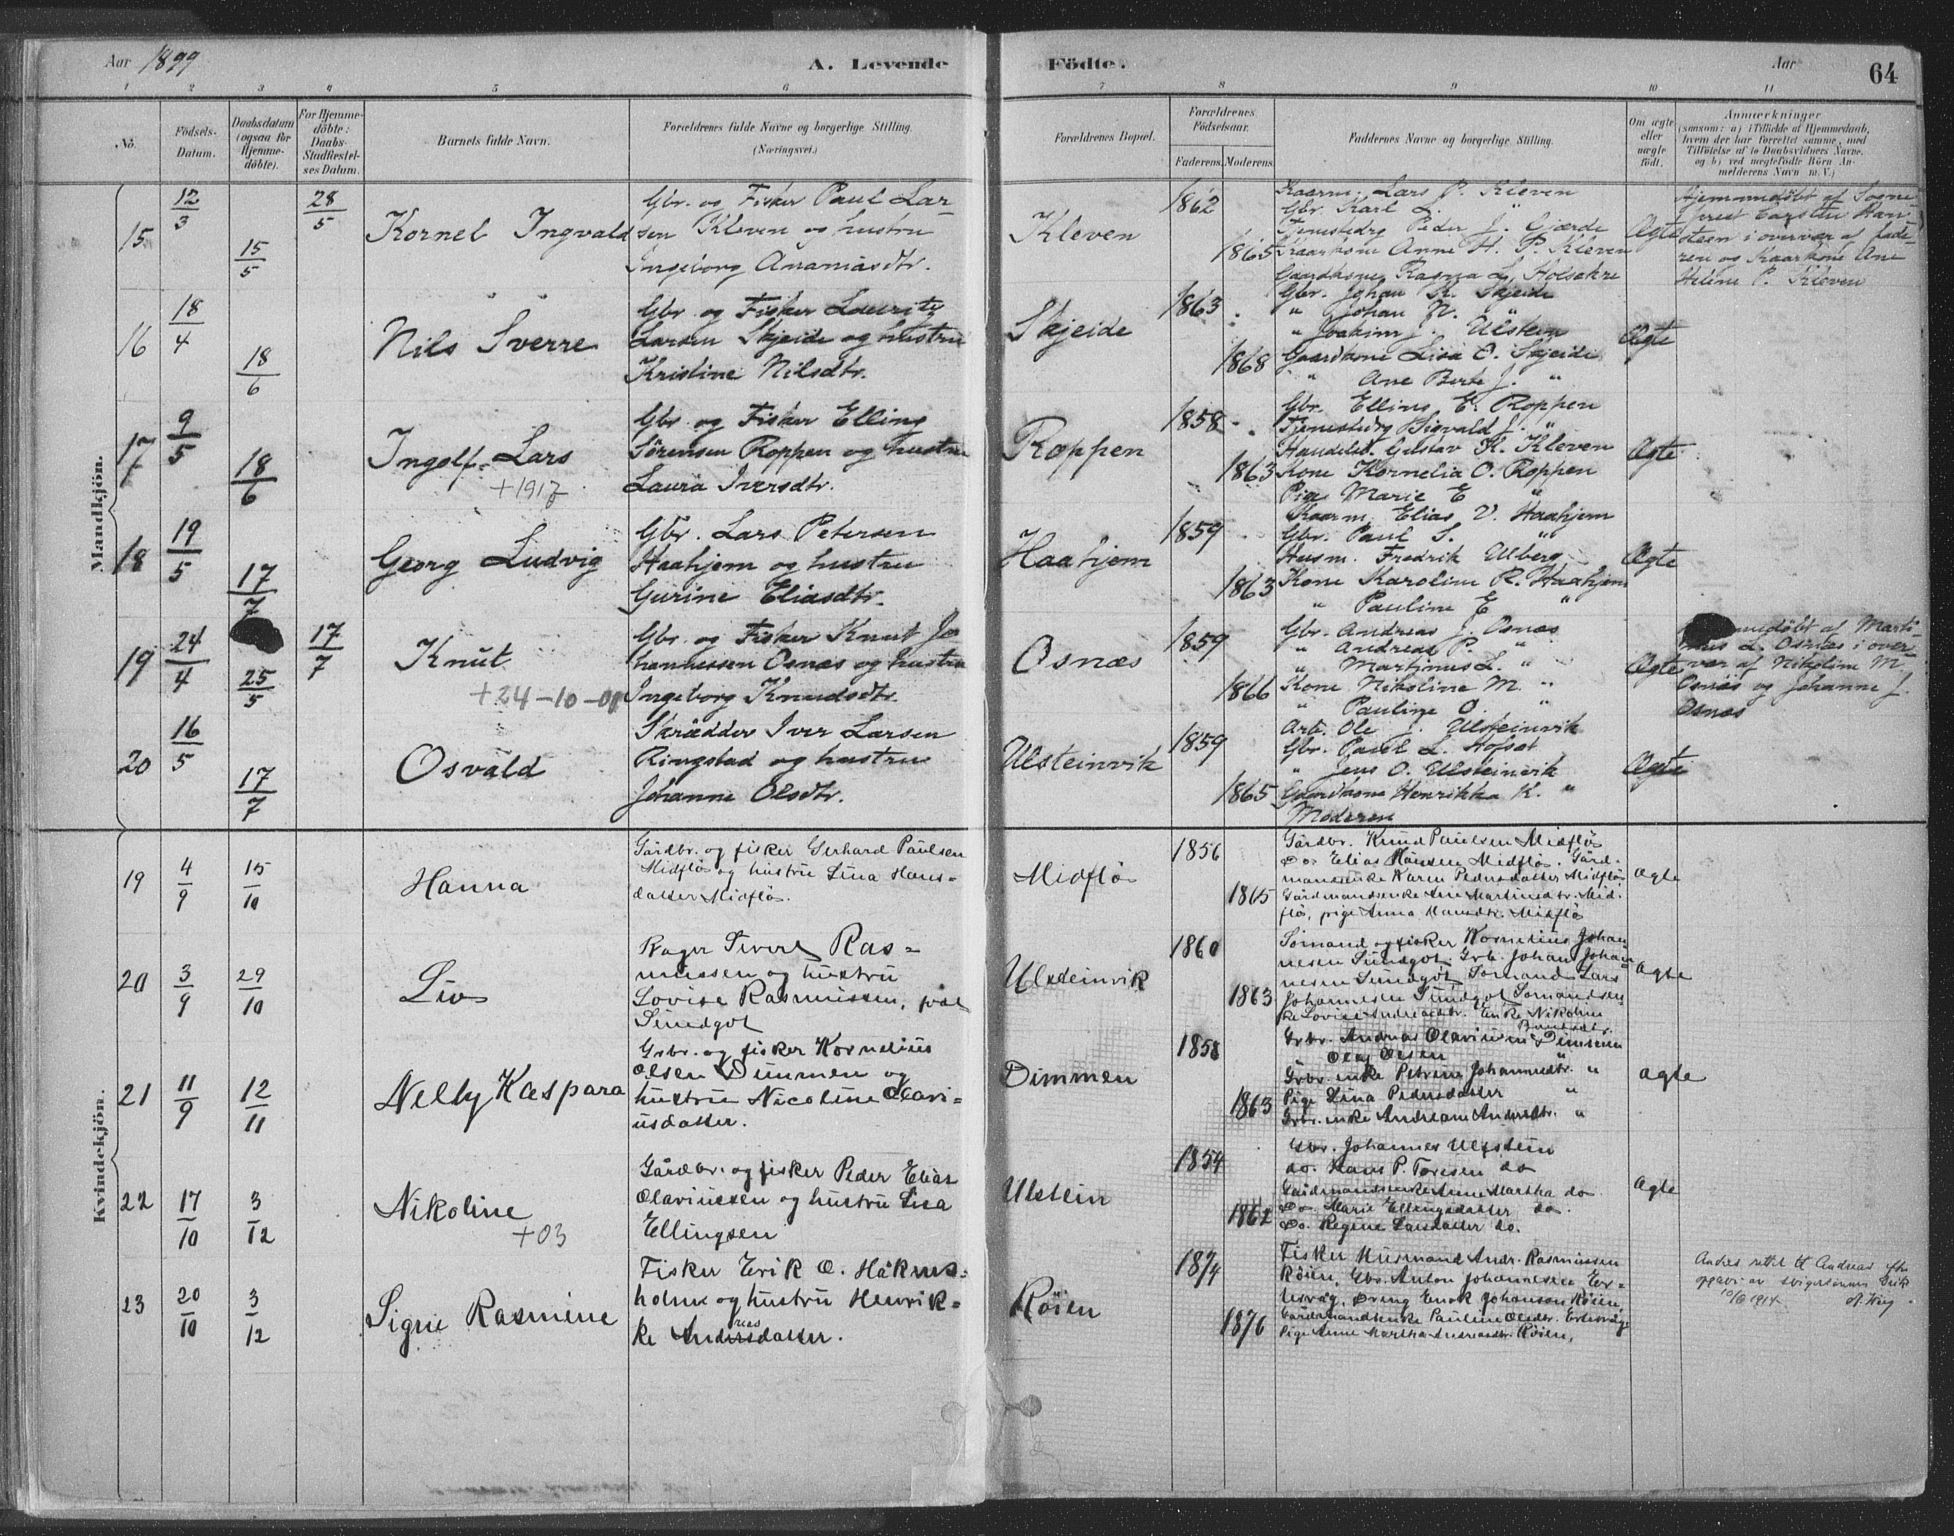 Aar 1899
A. Levende
Födte.
Aar
64
1 2 3 4 5 6 7 8 9 10 11
No.
Födsels-
Datum.
Daabsdatum
(ogsaa for
Hjemme-
döbte).
For Hjemme-
döbte:
Daabs-
Stadfæstel-
ses Datum.
Barnets fulde Navn.
Forældrenes fulde Navne og borgerlige Stilling.
(Næringsvei.)
Forældrenes Bopæl.
Forældrenes
Födselsaar.
Faderens. Moderens.
Faddernes Navne og borgerlige Stilling.
Om ægte
eller
uægte
födt.
Anmærkninger
(saasom: a) i Tilfælde af Hjemmedaab,
hvem der har forrettet samme, med
Tilföielse af to Daabsvidners Navne,
og b) ved uægtefödte Börn An-
melderens Navn m. V.)
Mandkjön.
15
12/3
15/5
28/5
Kornel Ingvald
Gbr. og Fisker Paul Lar-
sen Kleven og hustru
Ingeborg Ananiasdtr.
Kleven
1862
1865
Kaarm. Lars P. Kleven
Gbr. Karl L. "
Tjenestedrg Peder J. Gjærde
Kaarkone Anne H. P. Kleven
Gaardkone Rasma L. Holsekre
Ægte
Hjemmedöbt af Sogne-
prest Carsten Han-
steen i overvær af fade-
ren og Kaarkone Ane
Heline P. Kleven
16
18/4
18/6
Nils Sverre
Gbr. og Fisker Lauritz
Larsen Skjeide og hustru
Kristine Nilsdtr.
Skjeide
1863
1868
Gbr. Johan K. Skjeide
" Johan N. "
" Joakim J. Ulstein
Gaardkone Lisa O. Skjeide
" Ane Berte J. "
Ægte
17
9/5
18/6
Ingolf Lars
+1917
Gbr. og Fisker Elling
Sörensen Roppen og hustru
Laura Iversdtr.
Roppen
1858
1863
Gbr. Elling E. Roppen
Tjenestedrg Sigvald J. "
Handelsb. Gustav K. Kleven
Kone Kornelia O. Roppen
Pige Marie E. "
Ægte
18
19/5
17/7
Georg Ludvig
Gbr. Lars Petersen
Haahjem og hustru
Gurine Eliasdtr.
Haahjem
1859
1863
Kaarm. Elias V. Haahjem
Gbr. Paul S. "
Husm. Fredrik Ulberg
Kone Karoline R. Haahjem
" Pauline E "
Ægte
19
24/4
25/5
17/7
Knut
+24-10-01
Gbr. og Fisker Knut Jo
hannessen Osnæs og hustru
Ingeborg Knudsdtr.
Osnæs
1859
1866
Gbr. Andreas J. Osnæs
" Andreas P. "
" Martinus L. "
Kone Nikoline M. "
" Pauline O. "
Ægte
medöbt af Marti-
nus L. Osnæs i over-
vær af Nikoline M.
Osnæs og Johanne J.
Osnæs
20
16/5
17/7
Osvald
Skrædder Iver Larsen
Ringstad og hustru
Johanne Olsdtr.
Ulsteinvik
1859
1865
Arb. Ole J. Ulsteinvik
Gbr. Paul L. Hofset
" Jens O. Ulsteinvik
Gaardkone Henrikka K. "
Moderen
Ægte
Kvindekjön.
19
4/9
15/10
Hanna
Gårdbr. og fisker Gerhard Paulsen
Midflö og hustru Lina Hans-
datter Midflö.
Midflö
1856
1865
Gårdbr. Knud Paulsen Midflö
Do. Elias Hansen Midflö. Gård-
mandsenke Karen Pedersdatter Midflö
Gårdmandsenke Ane Martinusdtr. Mid-
flö, pige Anna Hansdtr. Midflö
ægte
20
3/9
29/10
Liv
Bager Sivert Ras-
mussen og hustru
Lovise Rasmussen, född
Sundgot
Ulsteinvik
1860
1863
Sömand og fisker Kornelius Johan-
nesen Sundgot. Grb. Johan Johan-
nesen Sundgot, Sömand Lars
Johannesen Sundgot, Sömandsen-
ke Lovise Andreasdtr. Enke Nikoline
ægte
21
11/9
12/11
Nelly Kaspara
Grbr. og fisker Kornelius
Olsen Dimmen og
hustru Nicoline Olavi-
usdatter.
Dimmen
1858
1863
Grbr. Andreas Olaviusen Dimmen
Olaf Olsen "
Grbr. enke Petrine Johannesdtr. "
Pige Lina Pedersdatter "
Grbr. enke Andreane Andersdtr. "
ægte
22
17/10
3/12
Nikoline
+03
Gårdbr. og fisker Peder Elias
Olaviussen og hustru Lisa
Ellingsen
Ulstein
1854
1862
Gbr. Johannes Ulstein
do. Hans P. Toresen do
Gårdmandsenke Anne Martha do
Do. Marie Ellingsdatter do.
Do. Regine Larsdatter do.
ægte
23
20/10
3/12
Signe Rasmine
Fisker Erik O. Håknes-
holm og hustru Henrik-
ke Andersdatter.
reas
Röien
1874
1876
Fisker Husmand Andr. Rasmussen
Röien, Gbr. Anton Johannesen Er-
tesvåg, Dreng Enok Johansen Röien,
Gårdmandsenke Pauline Olsdtr. Ertesvåg
Pige Anne Martha Andreasdtr. Röien,
Anders rettet til Andreas efter
opgave av svigersönnen Erik
10/6 1914.